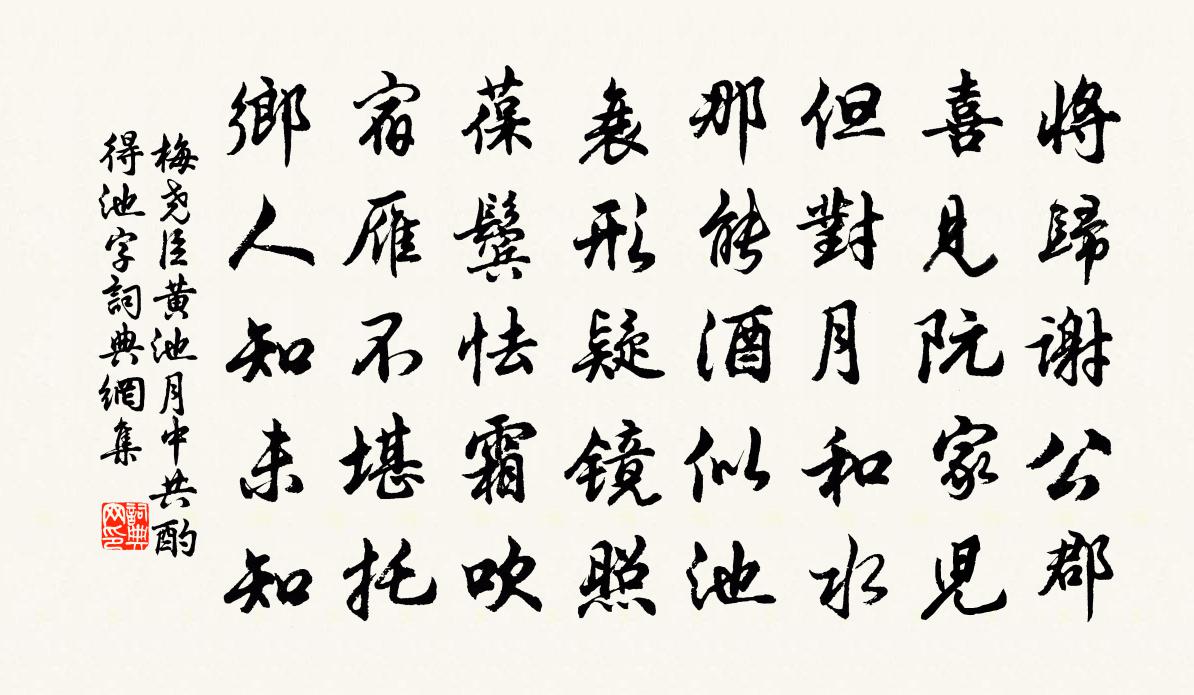 將歸謝公郡
喜見阮家兒
但對月和水
那能酒似池
衰形疑鏡照
葆鬢怯霜吹
宿雁不堪托
鄉人知未知
梅堯臣黃池月中共酌
得池字詞典網集
詞典
网印